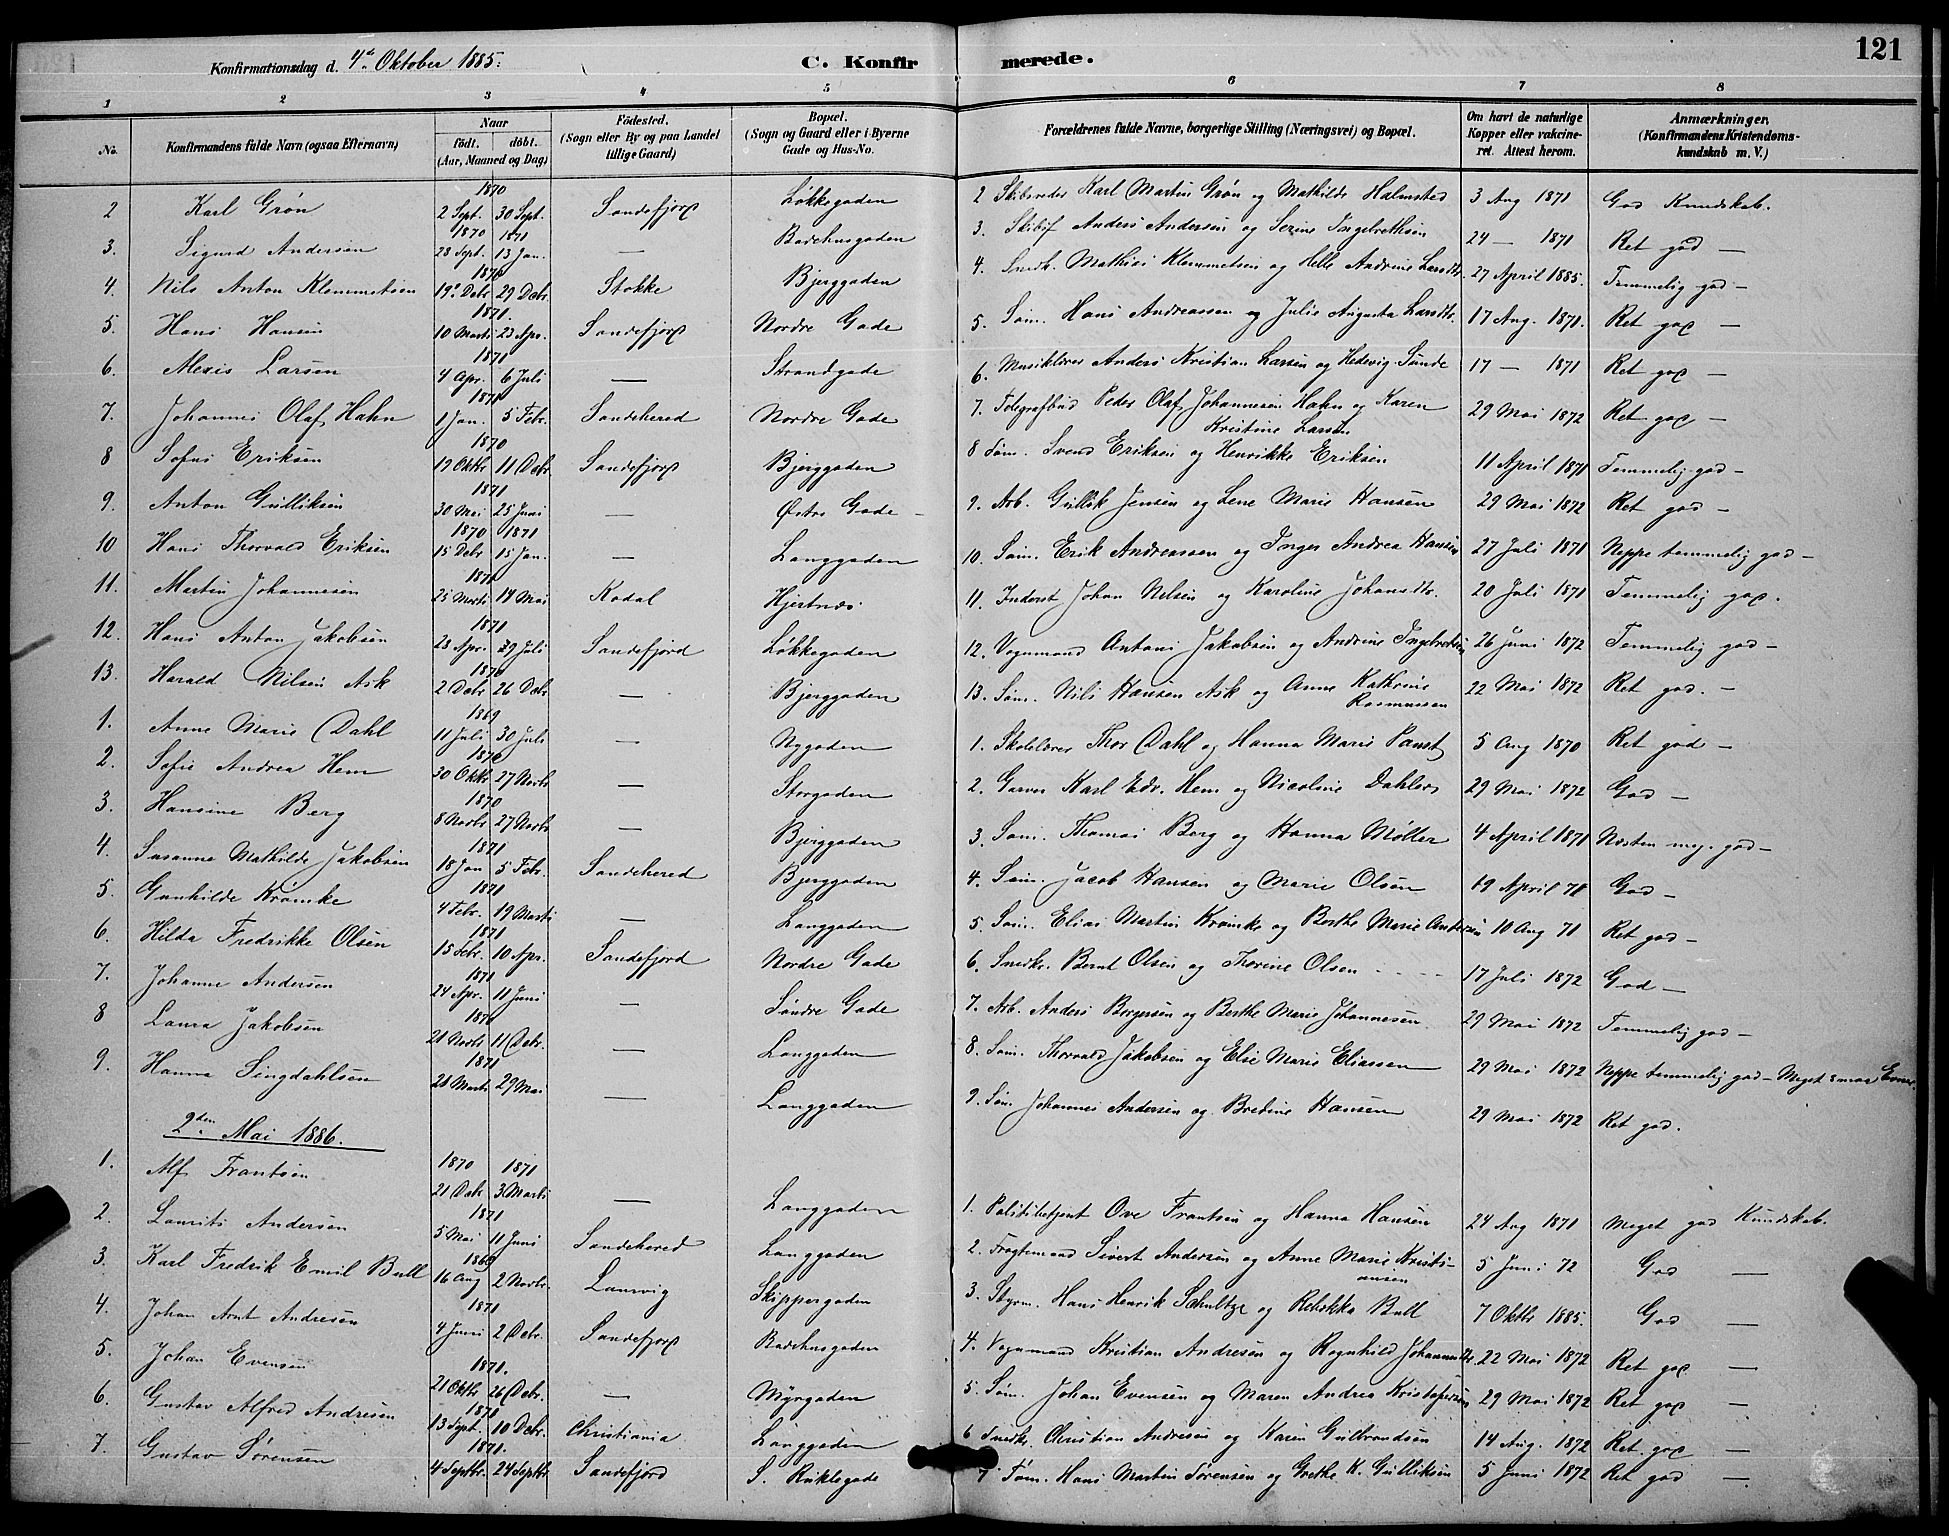 Konfirmationsdag d. 4de Oktober 1885.
C. Konfirmerede.
121
1 2 3 4 5 6 7 8
No. Konfirmandens fulde Navn (ogsaa Efternavn) Naar født. døbt. (Aar, Maaned og Dag) Fødested. (Sogn eller By og paa Landet tillige Gaard) Bopæl. (Sogn og Gaard eller i Byerne Gade og Hus-No. Forældrenes fulde Navne, borgerlige Stilling (Næringsvei) og Bopæl. Om havt de naturlige Kopper eller vakcineret. Attest herom. Anmærkninger, (Konfirmandens Kristendomskundskab m. V.)
2 Karl Grøn 1870 2 Sept. 30 Sept. Sandefjord Løkkegaden 2 Skibsreder Karl Martin Grøn og Mathilde Halmsted 3 Aug 1871 God Kundskab.
3. Sigurd Andersen 1870 1871 28 Sept. 13 Jan. — Badehusgaden 3. Skibsf Anders Andersen og Serine Ingebrethsen 24 — 1871 Ret god —
4. Nils Anton Klemmetsen 1870 19 Debr 29 Debr. Stokke Bjerggaden 4. Snedk. Mathias Klemmetsen og Helle Andrine Larsdtr. 27 April 1885. Temmelig god —
5. Hans Hansen 1871. 10 Marts 23 Apr. Sandefjord Nordre Gade 5. Søm. Hans Andreassen og Julie Augusta Larsdtr. 17 Aug. 1871. Ret god —
6. Alexis Larsen 1871 4 Apr. 6 Juli — Strandgade 6. Musiklærer Anders Kristian Larsen og Hedevig Sunde 17 — 1871 Ret god —
7. Johannes Olaf Hahn 1871 1 Jan. 5 Febr. Sandehered Nordre Gade 7. Telegrafbud Peder Olaf Johannesen Hahn og Karen Kristine Larsen 29 Mai 1872 Ret god —
8 Sofus Eriksen 1870 19 Oktbr 11 Debr. Sandefjord Bjerggaden 8 Søm. Svend Eriksen og Henrikke Eriksen 11 April 1871 Temmelig god —
9. Anton Gulliksen 1871 30 Mai 25 Juni — Østre Gade — 9. Arb. Gullik Jensen og Lene Marie Hansen 29 Mai 1872 Ret god —
10 Hans Thorvald Eriksen 1870 1871 15 Debr 15 Jan. — Langgaden 10. Søm. Erik Andreassen og Inger Andrea Hansen 27 Juli 1871 Neppe temmelig god —
11. Martin Johannesen 1871 25 Marts 14 Mai Kodal Hjertnæs. 11. Inderst Johan Nilsen og Karoline Johansdtr. 20 Juli 1871 Temmelig god.
12. Hans Anton Jakobsen 1871 23 Apr. 29 Juli Sandefjord Løkkegaden 12. Vognmand Antoni Jakobsen og Andrine Ingebretsen 26 Juni 1872 Temmelig god —
13. Harald Nilsen Ask 1870 2 Debr 26 Debr — Bjerggaden 13. Søm. Nils Hansen Ask og Anne Kathrine Rasmussen 22 Mai 1872 Ret god. —
1. Anne Marie Dahl 1869 11 Juli 30 Juli — Nygaden 1. Skolelærer Thor Dahl og Hanna Marie Paust 5 Aug 1870 Ret god —
2. Sofie Andrea Hem 1870 30 Oktbr 27 Novbr — Storgaden 2. Garver Karl Edv. Hem og Nicoline Dahlen 29 Mai 1872 God —
3. Hansine Berg 1870 8 Novbr 27 Novbr — Bjerggaden 3. Søm. Thomas Berg og Hanna Møller 4 April 1871 Næsten meg. god —
4. Susanne Mathilde Jakobsen 1871 18 Jan 5 Febr. Sandehered Bjerggaden 4. Søm. Jacob Hansen og Marie Olsen 19 April 71 God —
5. Gunhilde Krømke 1871 4 Febr. 19 Marts — Langgaden 5. Søm. Elias Martin Krømke og Berthe Marie Andersen 10 Aug 71 Ret god —
6. Hilda Fredrikke Olsen 1871 15 Febr. 10 Apr. Sandefjord Nordre Gade 6. Snedkr. Bernt Olsen og Thorine Olsen 17 Juli 1872 God —
7. Johanne Andersen 1871 24 Apr. 11 Juni — Søndre Gade 7. Arb. Anders Borgersen og Berthe Marie Johannesen 29 Mai 1872 Temmelig god —
8 Laura Jakobsen 1870 21 Novbr 11 Debr. — Langgaden 8. Søm. Thorvald Jakobsen og Else Marie Eliassen 29 Mai 1872 Neppe temmelig god — Meget smaa Evner
9. Hanna Singdahlsen 1871 28 Marts 29 Mai — Langgaden 9. Søm Johannes Andersen og Bredine Hansen 29 Mai 1872 Ret god.
2den Mai 1886.
1. Alf Frantsen 1870 1871 21 Debr 3 Marts — Langgaden 1. Politibetjent Ove Frantsen og Hanna Hansen 24 Aug 1871 Meget god Kundskab.
2. Laurits Andersen 1871 5 Mai 11 Juni Sandehered Langgaden 2. Fragtemand Sivert Andersen og Anne Marie Kristiansen 5 Juni 72 God —
3. Karl Fredrik Emil Bull 1869 16 Aug 2 Novbr. Laurvig Skippergaden 3. Styrm. Hans Henrik Schultze og Rebekka Bull 7 Oktbr 1885. God —
4. Johan Arnt Andresen 1871 4 Juni 2 Debr. Sandefjord Badehusgaden 4. Vognmand Kristian Andresen og Ragnhild Johannesdtr. 22 Mai 1872 Ret god —
5. Johan Evensen 1871. 21 Oktbr 26 Debr. — Myrgaden 5. Søm. Johan Evensen og Maren Andrea Kristofersen 29 Mai 1872 Ret god —
6. Gustav Alfred Andresen 1871 13 Sept. 10 Debr. Christiania Langgaden 6 Snedkr. Christian Andresen og Karen Gulbrandsen 14 Aug. 1872 Ret god —
7. Gustav Sørensen 1871. 4 Septbr. 24 Septbr Sandefjord S. Ruklegade 7 Søm. Hans Martin Sørensen og Grethe K. Gulliksen 5 Juni 1872 Ret god —